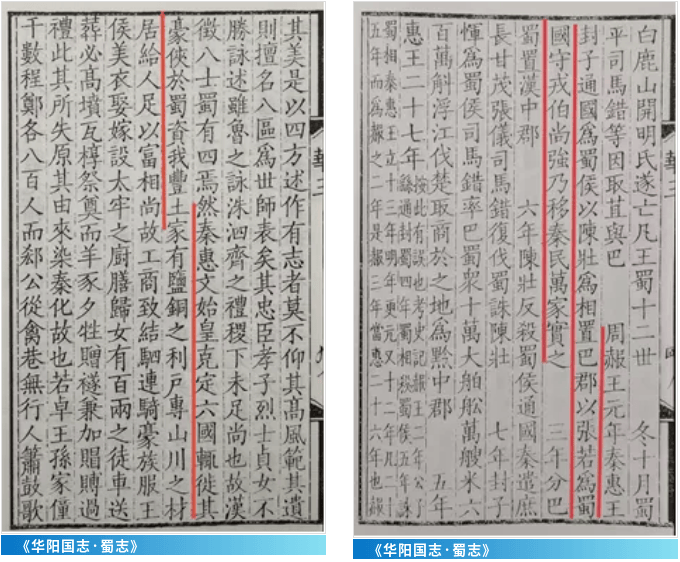 其美是以四方述作有志者莫不仰其高風範其遺
則擅名八區爲世師表矣其忠臣孝子烈士貞女不
勝詠述雖魯之詠洙泗齊之禮稷下未足尚也故漢
徵八士蜀有四焉然秦惠文始皇克定六國輒徙其
豪俠於蜀資我豐土家有鹽銅之利戶專山川之材
居給人足以富相尚故工商致結駟連騎豪族服王
侯美衣娶嫁設太牢之厨膳歸女有百兩之徒車送
葬必高墳瓦槨祭奠而羊豕夕牲贈襚兼加賵賻過
禮此其所失原其由來染秦化故也若卓王孫家僮
千數程鄭各八百人而郄公從禽巷無行人簫鼓歌
《华阳国志·蜀志》
白鹿山開明氏遂亡凡王蜀十二世 冬十月蜀
平司馬錯等因取苴與巴 周赧王元年秦惠王
封子通國爲蜀侯以陳壯爲相置巴郡以張若爲蜀
國守戎伯尚強乃移秦民萬家實之 三年分巴
蜀置漢中郡 六年陳壯反殺蜀侯通國秦遣庶
長甘茂張儀司馬錯復伐蜀誅陳壯 七年封子
惲爲蜀侯司馬錯率巴蜀衆十萬大舶舩萬艘米六
百萬斛浮江伐楚取商於之地爲黔中郡 五年
惠王二十七年
按此有誤也考史記赧王二年公子
繇通封蜀四年蜀相殺蜀侯五年誅
蜀相秦惠王立十三年明年更元又十二年凡二十
五年而爲赧之二年是赧三年當惠二十六年也赧
《华阳国志·蜀志》